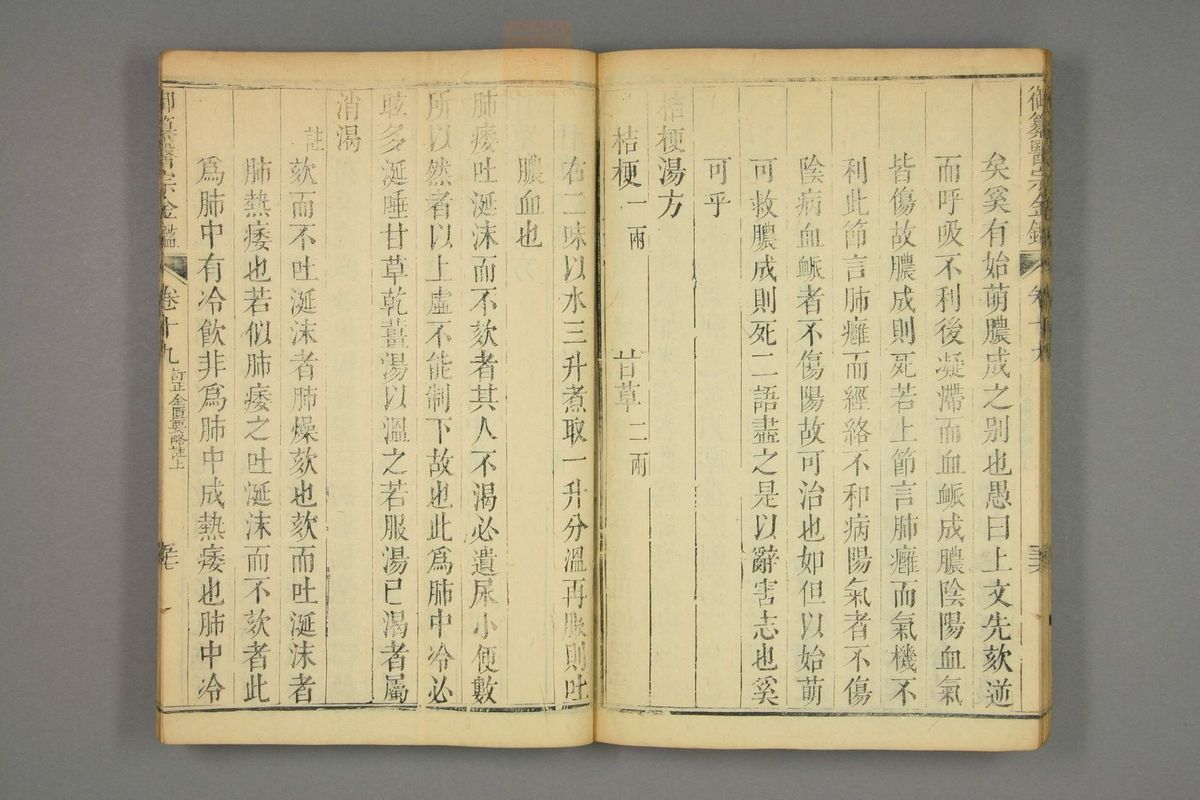 御纂醫宗金鑑
矣奚有始萌膿成之别也愚曰上文先欬逆
而呼吸不利後凝滯而血衇成膿陰陽血氣
皆傷故膿成則死若上節言肺癰而氣機不
利此節言肺癰而經絡不和病陽氣者不傷
陰病血衇者不傷陽故可治也如但以始萌
可救膿成則死二語盡之是以辭害志也奚
可乎
桔梗湯方
桔梗一兩 甘草二兩
右二味以水三升煮取一升分溫再服則吐
膿血也
肺痿吐涎沫而不欬者其人不渴必遺尿小便數
所以然者以上虛不能制下故也此爲肺中冷必
眩多涎唾甘草乾薑湯以溫之若服湯已渴者屬
消渴
註
欬而不吐涎沫者肺燥欬也欬而吐涎沫者
肺熱痿也若似肺痿之吐涎沫而不欬者此
爲肺中有冷飲非爲肺中成熱痿也肺中冷
御纂醫宗金鑑 卷十九 訂正金匱要略註上